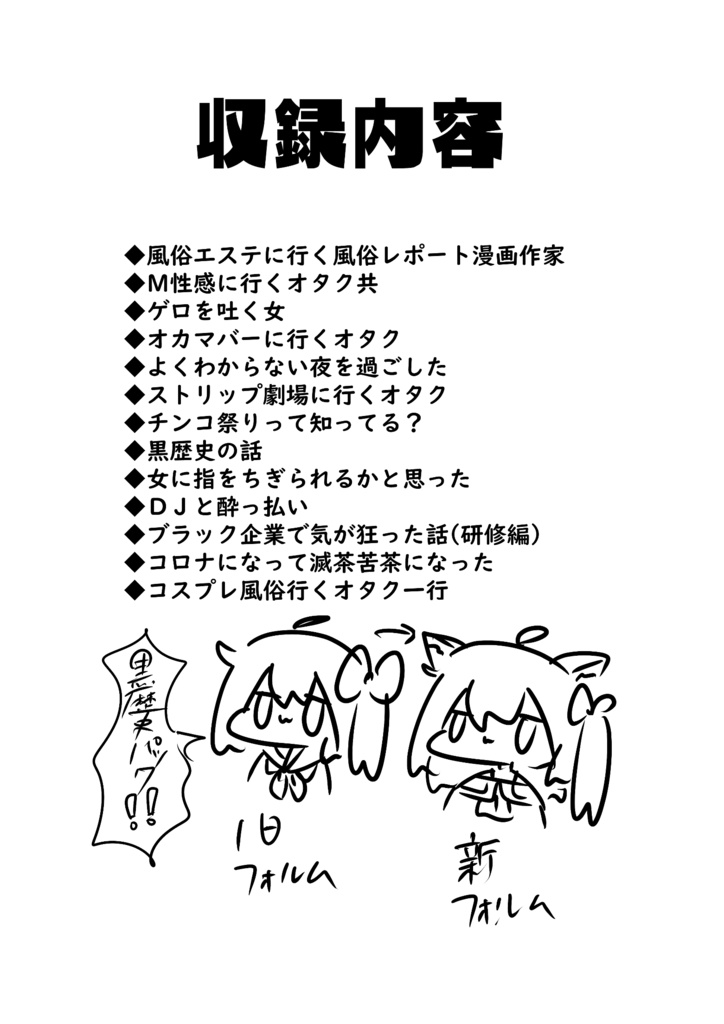 収録内容
◆風俗エステに行く風俗レポート漫画作家
◆M性感に行くオタク共
◆ゲロを吐く女
◆オカマバーに行くオタク
◆よくわからない夜を過ごした
◆ストリップ劇場に行くオタク
◆チンコ祭りって知ってる?
◆黒歴史の話
◆女に指をちぎられるかと思った
◆DJと酔っ払い
◆ブラック企業で気が狂った話(研修編)
◆コロナになって滅茶苦茶になった
◆コスプレ風俗行くオタク一行
黒歴史パック!!
旧
フォルム
新
フォルム